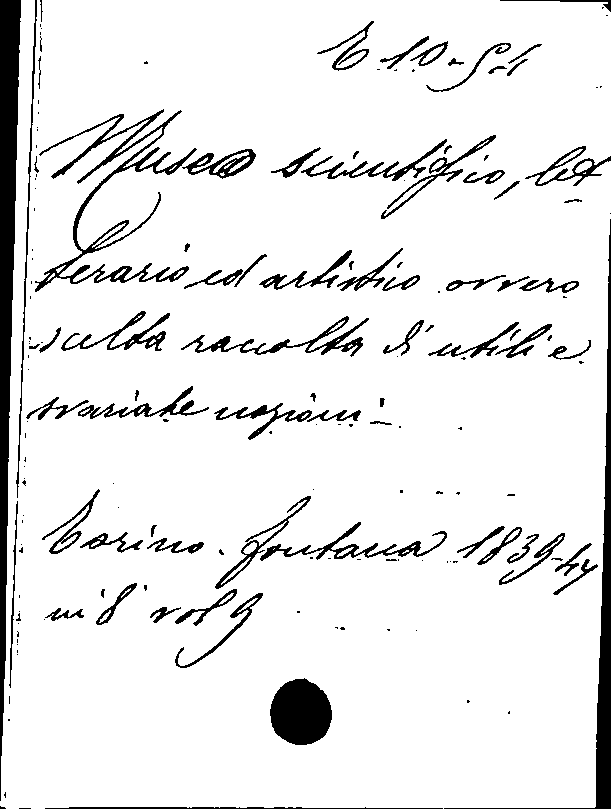 E 10-5-1
Museo scientifico, let
terario ed artistico ovvero
scelta raccolta di utili e
svariate nozioni -
Torino. Fontana 1839-47
in 8° vol 9